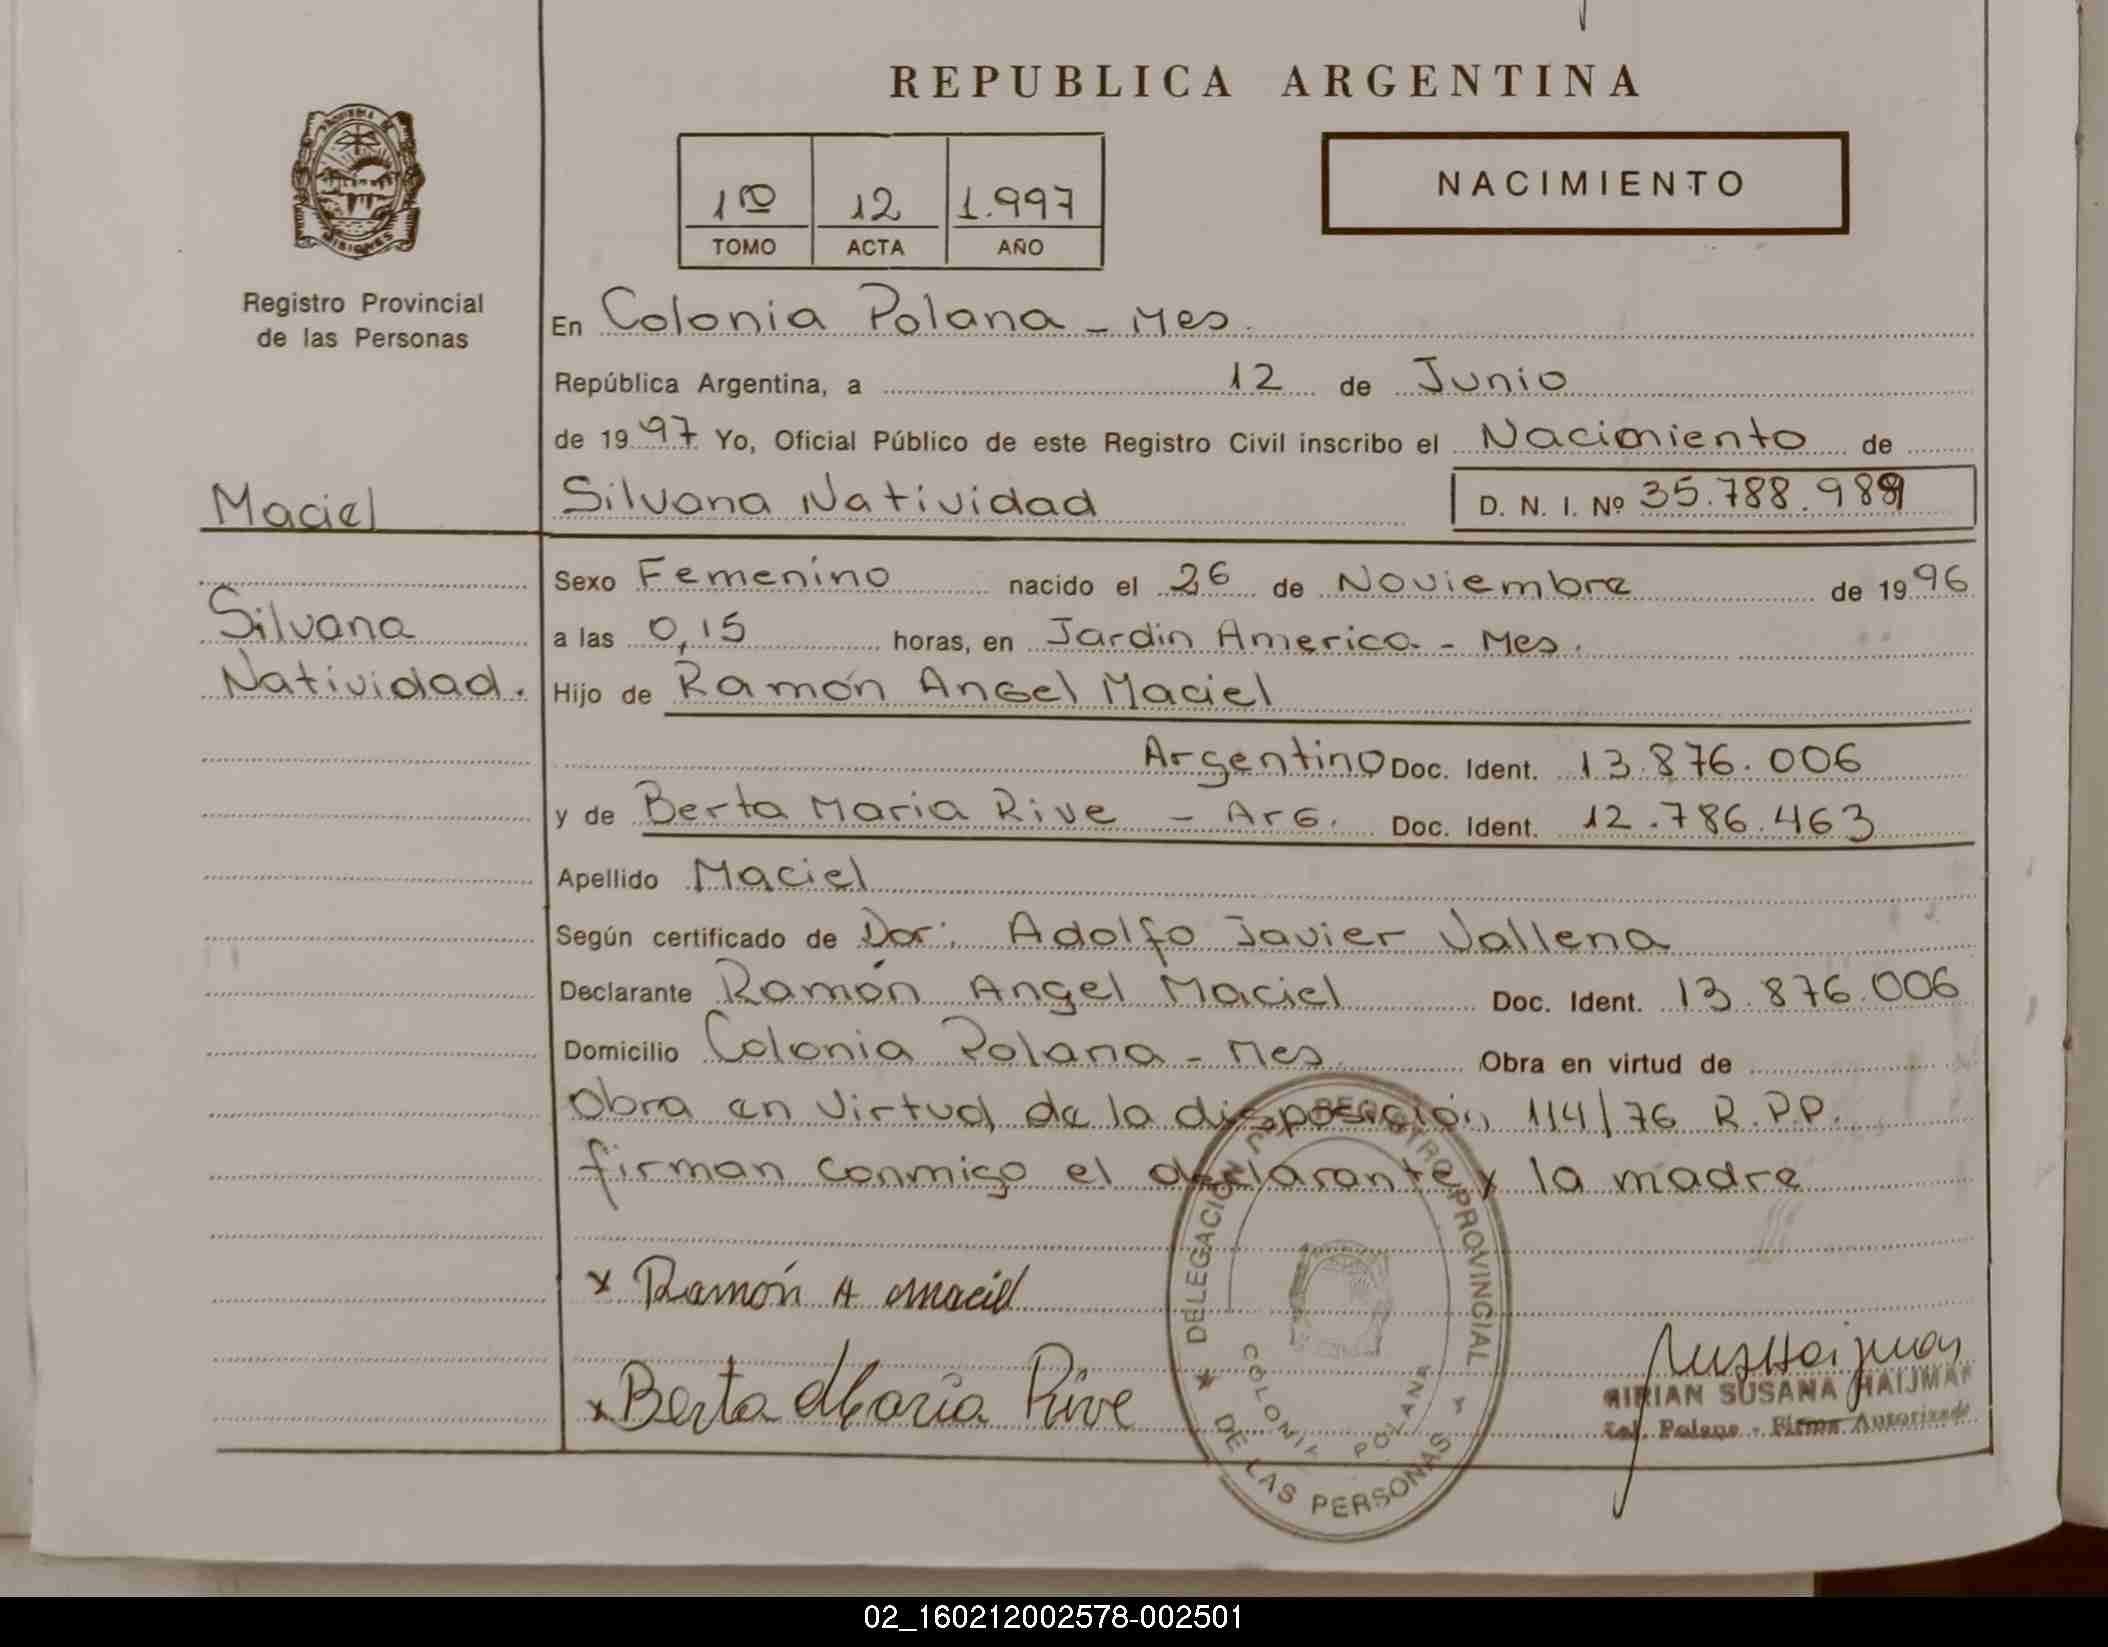 REPUBLICA ARGENTINA
PROVINCIA DE
MISIONES
Registro Provincial
de las Personas
1º 12 1.997
TOMO ACTA AÑO
NACIMIENTO
En Colonia Polana - Mes.
República Argentina, a 12 de Junio
de 1997 Yo, Oficial Público de este Registro Civil inscribo el Nacimiento de
Maciel
Silvana Natividad.
Silvana Natividad D. N. I. Nº 35.788.989
Sexo Femenino nacido el 26 de Noviembre de 1996
a las 0,15 horas, en Jardin America - Mes.
Hijo de Ramón Angel Maciel
Argentino Doc. Ident. 13.876.006
y de Berta Maria Rive - Arg. Doc. Ident. 12.786.463
Apellido Maciel
Según certificado de Dor: Adolfo Javier Vallena
Declarante Ramón Angel Maciel Doc. Ident. 13.876.006
Domicilio Colonia Polana - Mes. Obra en virtud de
Obra en virtud de la disposición 114/76 R.P.P.
firman conmigo el declarante y la madre
x Ramón A Maciel
x Berta Maria Rive
DELEGACION REGISTRO PROVINCIAL
DE LAS PERSONAS
COLONIA POLANA
MIRIAN SUSANA HAIJMAN
Col. Polana - Firma Autorizada
02_160212002578-002501